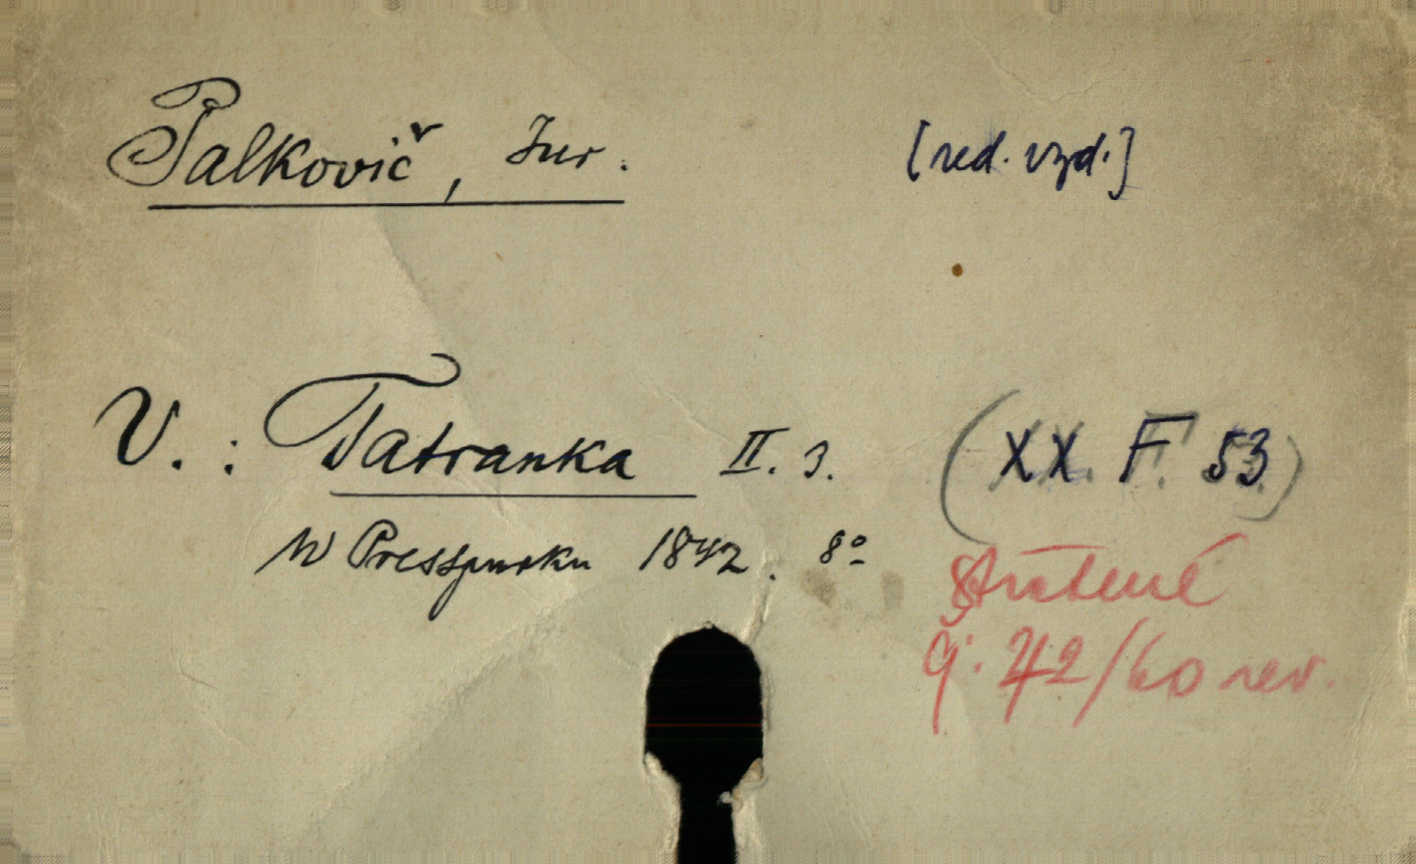 Palkovič, Jur. [red. vyd.]
V. : Tatranka II. 3. (XX. F. 53.)
W Presspurku 1842. 8º
Stratené
č. 42/60 rev.